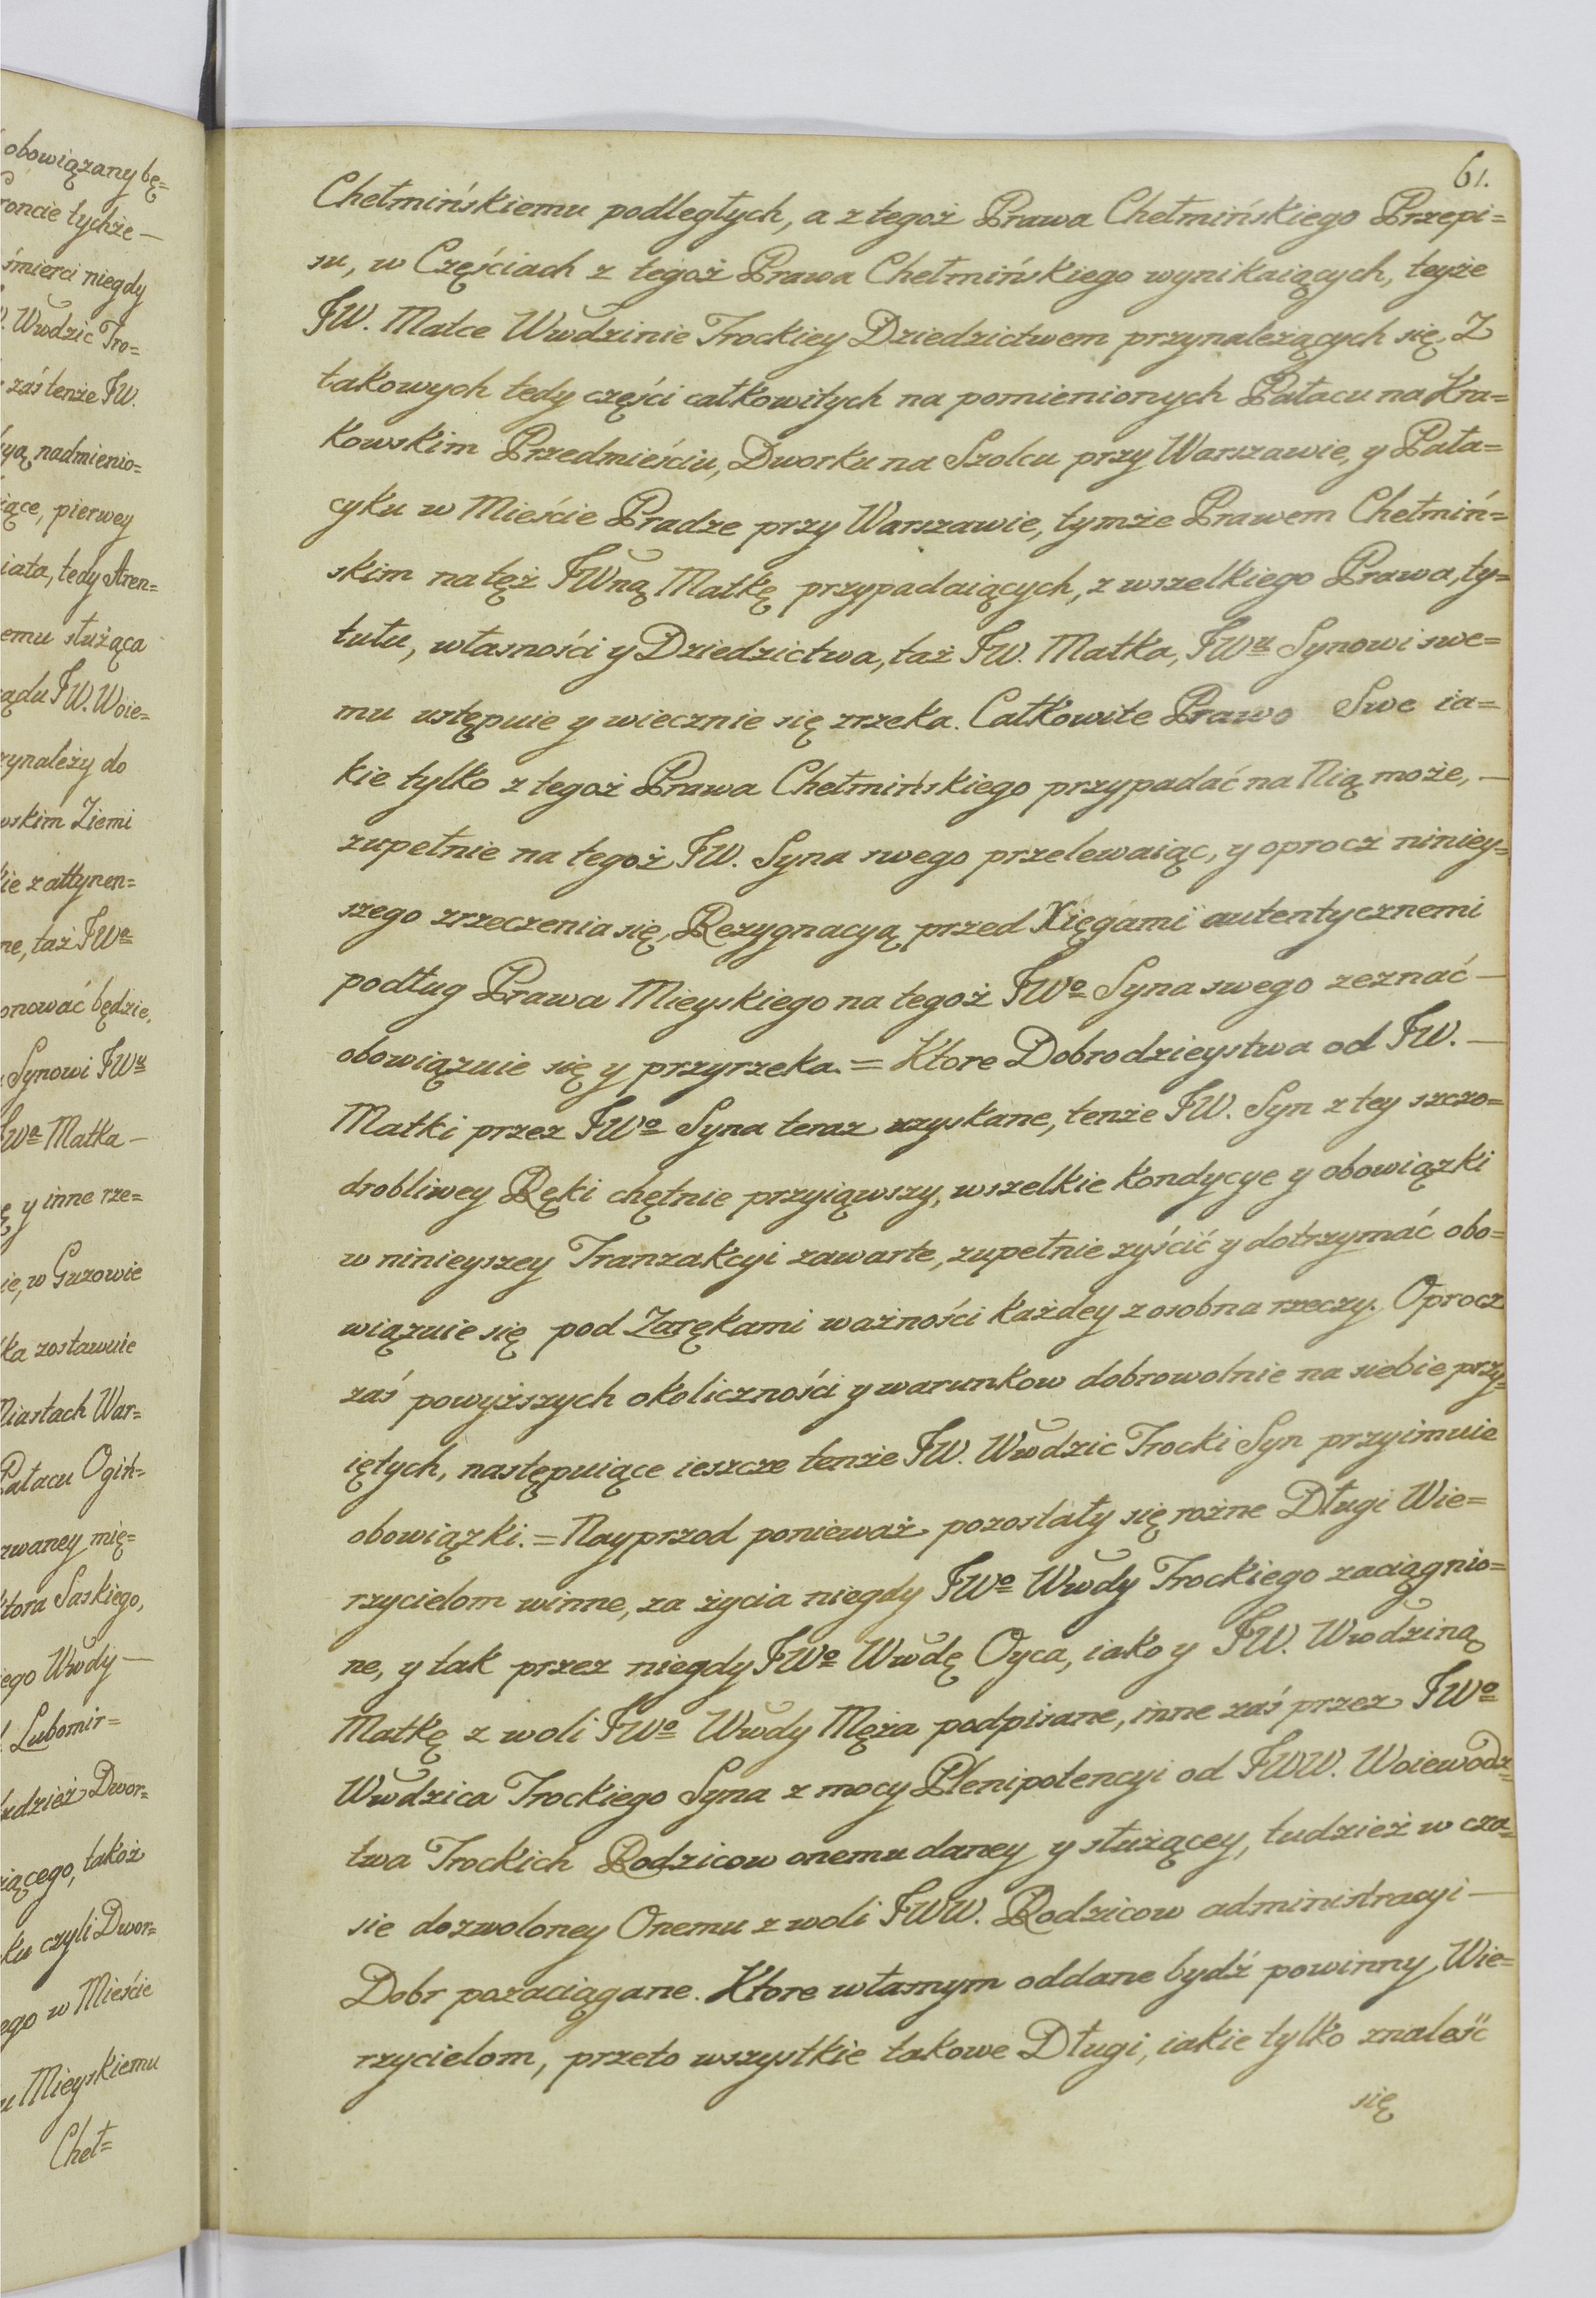 obowiązany bę=
roncie tychże —
śmierci niegdy
. Wwdzic Tro=
zaś tenże JW.
yą nadmienio=
iące, pierwey
iata, tedy Aren=
emu służąca
ądu JW. Woie=
rzynależy do
wskim Ziemi
kie z attynen=
ne, taż JWa
onować będzie,
Synowi JWu
JWa Matka —
ę y inne rze=
ie, w Guzowie
ka zostawuie
Miastach War=
Pałacu Ogiń=
zwaney mię=
ktora Saskiego,
iego Wwdy —
Lubomir=
tudzież Dwor=
iącego, takoż
ku czyli Dwor=
ego w Mieście
u Mieyskiemu
Cheł=
61.
Chełmińskiemu podległych, a z tegoż Prawa Chełmińskiego Przepi=
su, w Częściach z tegoż Prawa Chełmińskiego wynikaiących, teyże
JW. Matce Wwdzinie Trockiey Dziedzictwem przynależących się, Z
takowych tedy części całkowitych na pomienionych Pałacu na Kra=
kowskim Przedmieściu, Dworku na Szolcu przy Warszawie, y Pała=
cyku w Mieście Pradze przy Warszawie, tymże Prawem Chełmiń=
skim na tęż JWną Matkę przypadaiących, z wszelkiego Prawa, ty=
tułu, własności y Dziedzictwa, taż JW. Matka, JWu Synowi swe=
mu ustępuie y wiecznie się zrzeka. Całkowite Prawo Swe ia=
kie tylko z tegoż Prawa Chełmińskiego przypadać na Nią może, —
zupełnie na tegoż JW. Syna swego przelewaiąc, y oprocz niniey=
szego zrzeczenia się, Rezygnacyą przed Xięgami autentycznemi
podług Prawa Mieyskiego na tegoż JWo Syna swego zeznać —
obowiązuie się y przyrzeka. = Ktore Dobrodzieystwa od JW. —
Matki przez JWo Syna teraz uzyskane, tenże JW. Syn z tey szczo=
drobliwey Ręki chętnie przyiąwszy, wszelkie kondycye y obowiązki
w ninieyszey Tranzakcyi zawarte, zupełnie zyścić y dotrzymać obo=
wiązuie się pod Zarękami ważności każdey z osobna rzeczy. Oprocz
zaś powyższych okoliczności y warunkow dobrowolnie na siebie przy=
iętych, następuiące ieszcze tenże JW. Wwdzic Trocki Syn przyimuie
obowiązki. = Nayprzod ponieważ pozostały się rożne Długi Wie=
rzycielom winne, za życia niegdy JWo Wwdy Trockiego zaciągnio=
ne, y tak przez niegdy JWo Wwdę Oyca, iako y JW. Wwdziną
Matkę z woli JWo Wwdy Męża podpisane, inne zaś przez JWo
Wwdzica Trockiego Syna z mocy Plenipotencyi od JWW. Woiewodz=
twa Trockich Rodzicow onemu daney y służącey, tudzież w cza=
sie dozwoloney Onemu z woli JWW. Rodzicow administracyi —
Dobr pozaciągane. Ktore własnym oddane bydź powinny Wie=
rzycielom, przeto wszystkie takowe Długi, iakie tylko znaleść
się